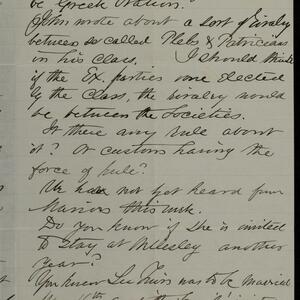 be Greek Oration?
John wrote about a sort of rivalry
between so called Plebs & Patricians
in his class. I should think
if the Ex. parties were elected
by the class, the rivalry would
be between the Societies.
Is there any rule about
it? Or custom having the
force of rule?
We have not yet heard from
Marion this week.
Do you know if she is invited
to stay at Wellesley another
year?
You knew Lee was to be married